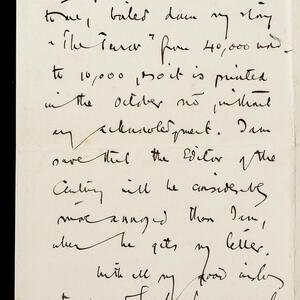 to me, boiled down my story
"The Terror" from 40,000 words
to 10,000, & so it is printed
in the October no, without
my acknowledgment. I am
sure that the Editor of the
Century will be considerably
more annoyed than I am,
when he gets my letter.
With all my good wishes